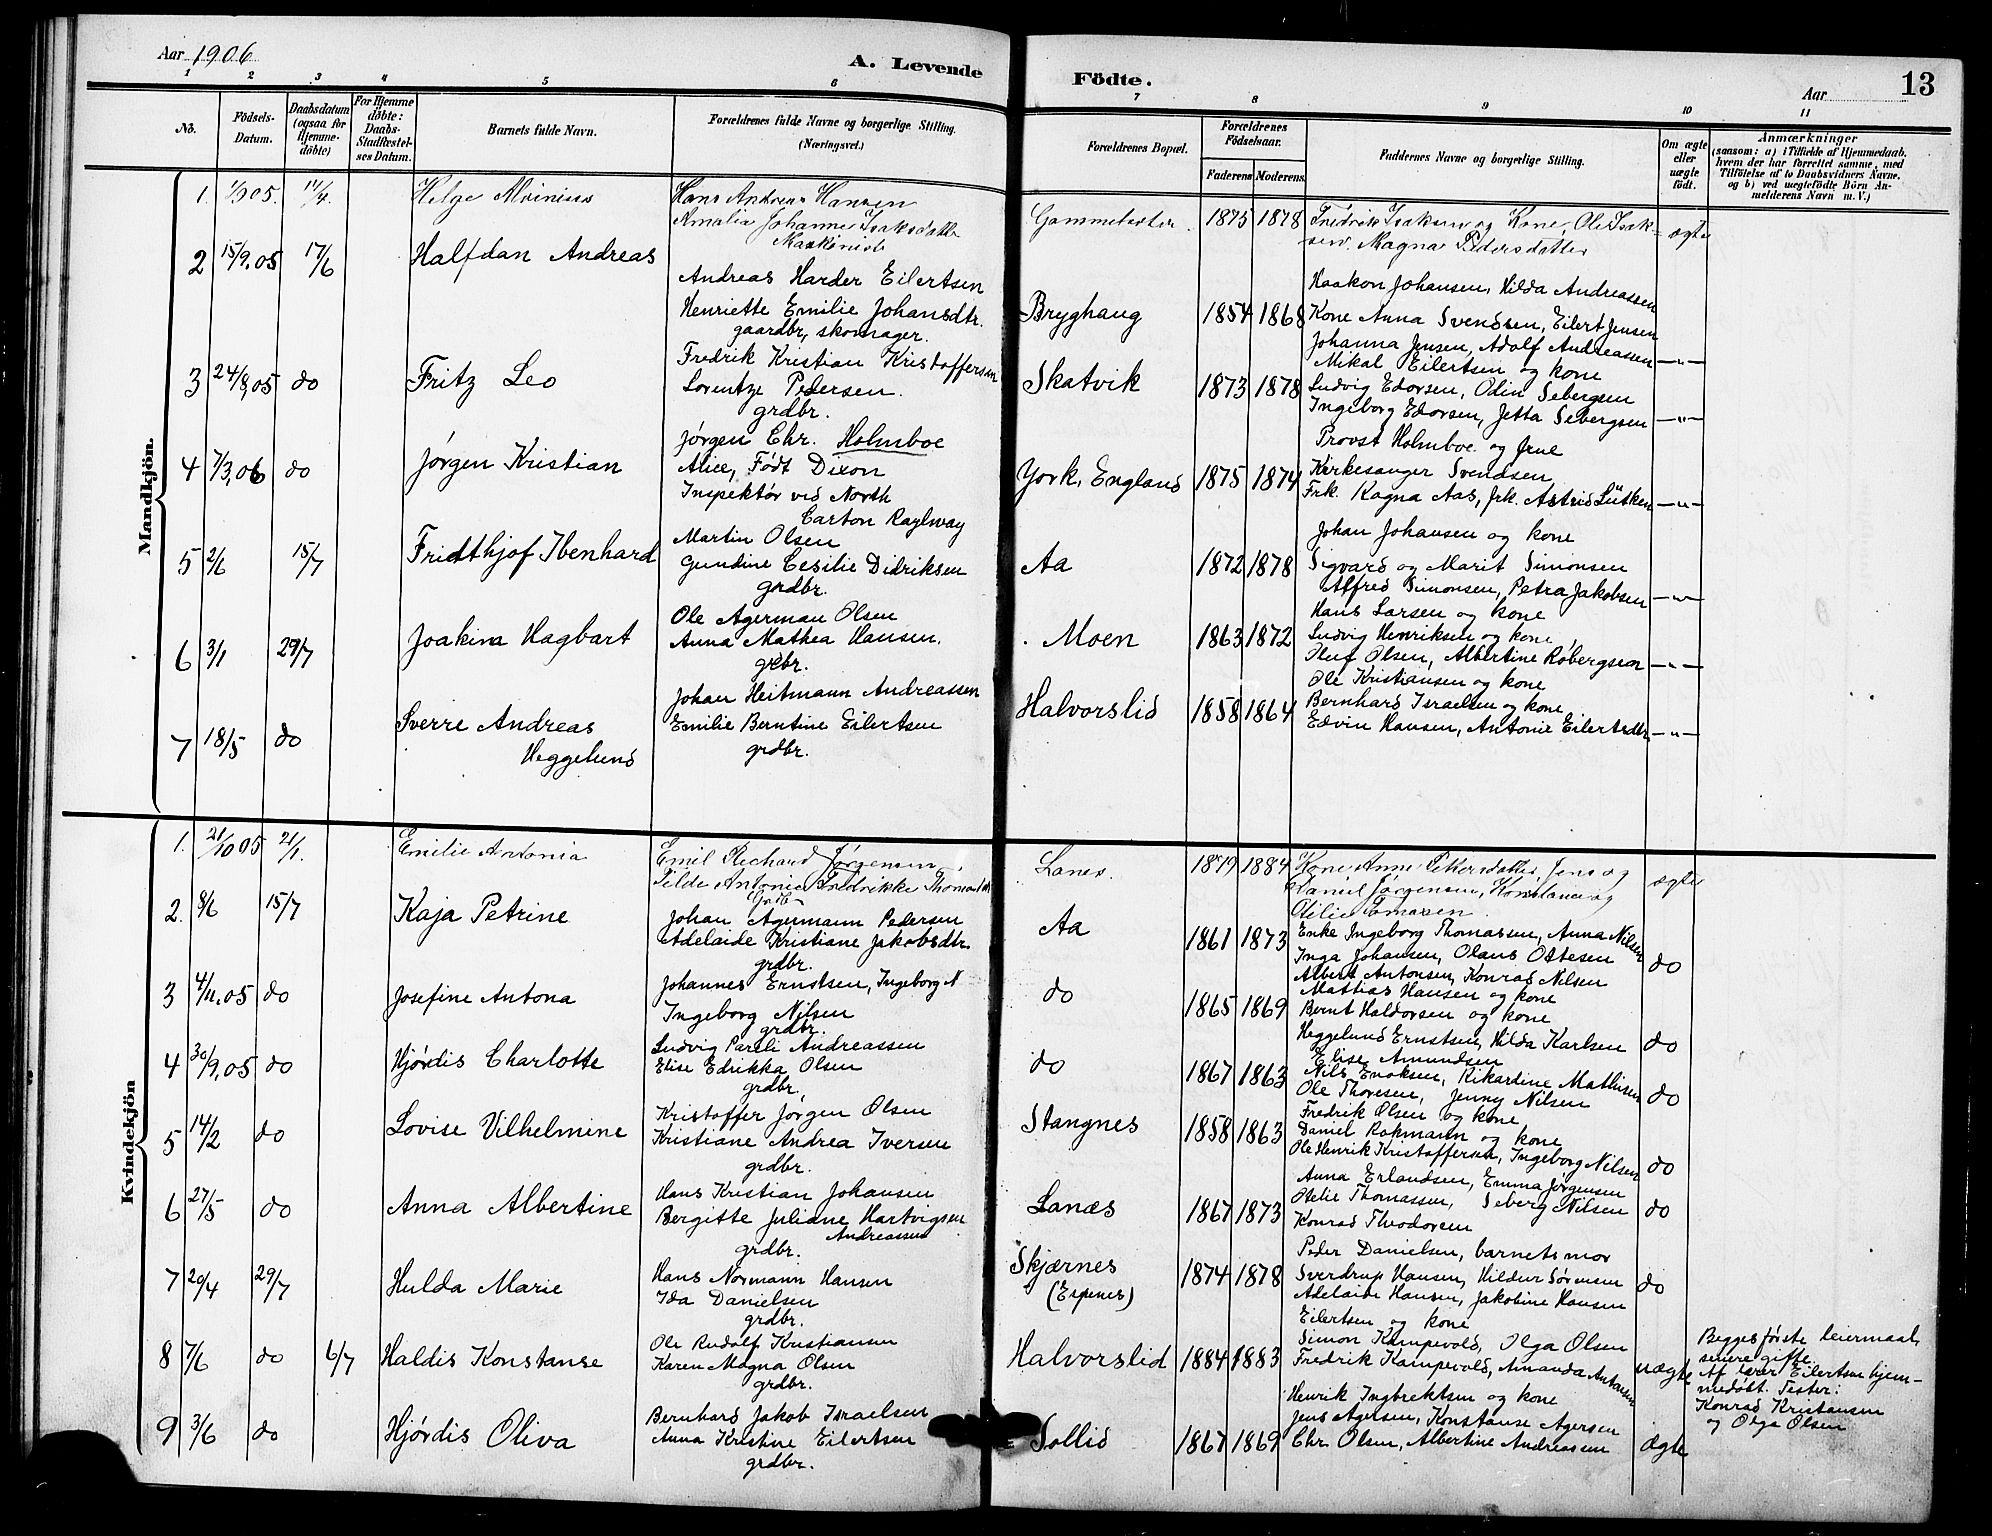 Aar 1906
A. Levende Födte.
13
Aar
1 2 3 4 5 6 7 8 9 10 11
No.
Födsels-Datum.
Daabsdatum (ogsaa for Hjemme-döbte)
For Hjemme döbte: Daabs-Stadfæstel-ses Datum.
Barnets fulde Navn.
Forældrenes fulde Navne og borgerlige Stilling. (Næringsvei.)
Forældrenes Bopæl.
Forældrenes Födselsaar.
Faderens Moderens
Faddernes Navne og borgerlige Stilling.
Om ægte eller uægte födt.
Anmærkninger
(saasom: a) i Tilfælde af Hjemmedaab, hvem der har forrettet samme, med Tilföielse af to Daabsvidners Navne, og b) ved uægtefödte Börn An-melderens Navn m. V.)
Mandkjön.
1. 05. Helge
Hans Andreas Hansen
Amalia Johanne Isaksdatter
Maskinist
1875 1878
Fredrik Isaksen og Kone, Ole Isak-
sen. Magna Pedersdatter
ægte
2 15/9.05 17/6 Halfdan Andreas
Andreas Harder Eilertsen
Henriette Emilie Johansdtr.
gaardbr, skomager.
Bryghaug 1854 1868
Haakon Johansen, Hilda Andreassen
Kone Anna Svendsen, Eilert Jensen
Johanna Jensen, Adolf Andreassen
Mikal Eilertsen og kone
—"—
3 24/8,05 do Fritz Leo
Fredrik Kristian Kristoffersen
Lorentze Pedersen.
grdbr.
Skatvik 1873 1878
Ludvig Edorsen, Odin Sebergsen
Ingeborg Edorsen, Jetta Sebergsen
—"—
4 7/3,06 do Jørgen Kristian
Jørgen Chr. Holmboe
Alice, Født Dixon
Inspektør ved North
Carton Raylway
York, England 1875 1874
Provst Holmboe og frue
Kirkesanger Svendsen
Frk. Ragna Aas, frk. Astrid Lütken
—"—
5 2/6 15/7 Fridthjof Ibenhard
Martin Olsen
Gundine Cesilie Didriksen
grdbr.
Aa 1872 1878
Johan Johansen og kone
Sigvard og Marit Simonsen
Alfred Simonsen, Petra Jakobsen
—"—
6 3/1 29/7 Joakim Hagbart
Ole Agerman Olsen
Anna Mathea Hansen.
grdbr.
Moen 1863 1872
Hans Larsen og kone
Ludvig Henriksen og kone
Oluf Olsen, Albertine Robergsen
—"—
7 18/5 do Sverre Andreas
Heggelund
Johan Heitmann Andreassen
Emilie Berntine Eilertsen
grdbr.
Halvorslid 1858 1864
Ole Kristiansen og kone
Bernhard Israelsen og kone
Edvin Hansen, Antonie Eilertsdtr
—"—
Kvindekjön
1. 21/10 05 21/1. Emilie Antonia
Emil Richard Jørgensen
Tilde Antonie Fredrikke
Lanes. 1879 1884
Kone Anne Pettersdatter, Jens og
Daniel Jørgensen, Konstance og
Otilie Tomassen.
ægte
2. 8/6 15/7 Kaja Petrine
Johan Agermann Pedersen
Adelaide Kristiane Jakobsdtr
grdbr.
Aa 1861 1873
Enke Ingeborg Thomassen, Anna Nilsen
Inga Johansen, Olaus Ottesen
Albert Antonsen, Konrad Nilsen
do
3 4/11.05 do Josefine Antona
Johannes Ernstsen, Ingeborg N
Ingeborg Nilsen
grdbr.
do 1865 1869
Mattias Hansen og kone
Bernt Haldorsen og kone
Heggelund Ernstsen, Hilda Karlsen
do
4 30/9,05 do Hjørdis Charlotte
Ludvig Pareli Andreassen
Elise Edrikka Olsen
grdbr,
do 1867 1863
Elise Amundsen
Nils Enoksen, Rikardine Mathisen
Ole Thoresen, Jenny Nilsen
do
5 14/2 do Lovise Vilhelmine
Kristoffer Jørgen Olsen
Kristiane Andrea Iversen
grdbr.
Stangnes 1858 1863
Fredrik Olsen og kone
Daniel Rokmann og kone
Ole Henrik Kristoffersen, Ingeborg Nilsen
do
6 27/5 do Anna Albertine
Hans Kristian Johansen
Bergitte Juliane Hartvigsen
Andreassen
grdbr.
Lanæs 1867 1873
Anna Erlandsen, Emma Jørgensen
Otelie Thomassen, Seberg Nilsen
Konrad Theodorsen
do
7 20/4 29/7 Hulda Marie
Hans Normann Hansen
Ida Danielsen
grdbr.
Skjærnes
(Espenes)
1874 1878
Peder Danielsen, barnets mor
Sverdrup Hansen, Hildur Sørensen
Adelaide Hansen, Jakobine Hansen
do
8 7/6 do 6/7 Haldis Konstanse
Ole Rudolf Kristiansen
Karen Magna Olsen
grdbr.
Halvorslid 1884 1883
Eilertsen og kone
Simon Kampevold, Olga Olsen
Fredrik Kampevold, Amanda Antonsen
uægte
Begges første leiermaal,
senere gifte.
Af lærer Eilertsen hjem-
medøbt. Tester:
Konrad Kristiansen
og Olga Olsen
9 3/6 do Hjørdis Oliva
Bernhard Jakob Israelsen
Anna Kristine Eilertsen
grdbr.
Sollid 1867 1869
Henrik Ingbrektsen og kone
Jens Agersen, Konstanse Agersen
Chr. Olsen, Albertine Andreassen
Ægte